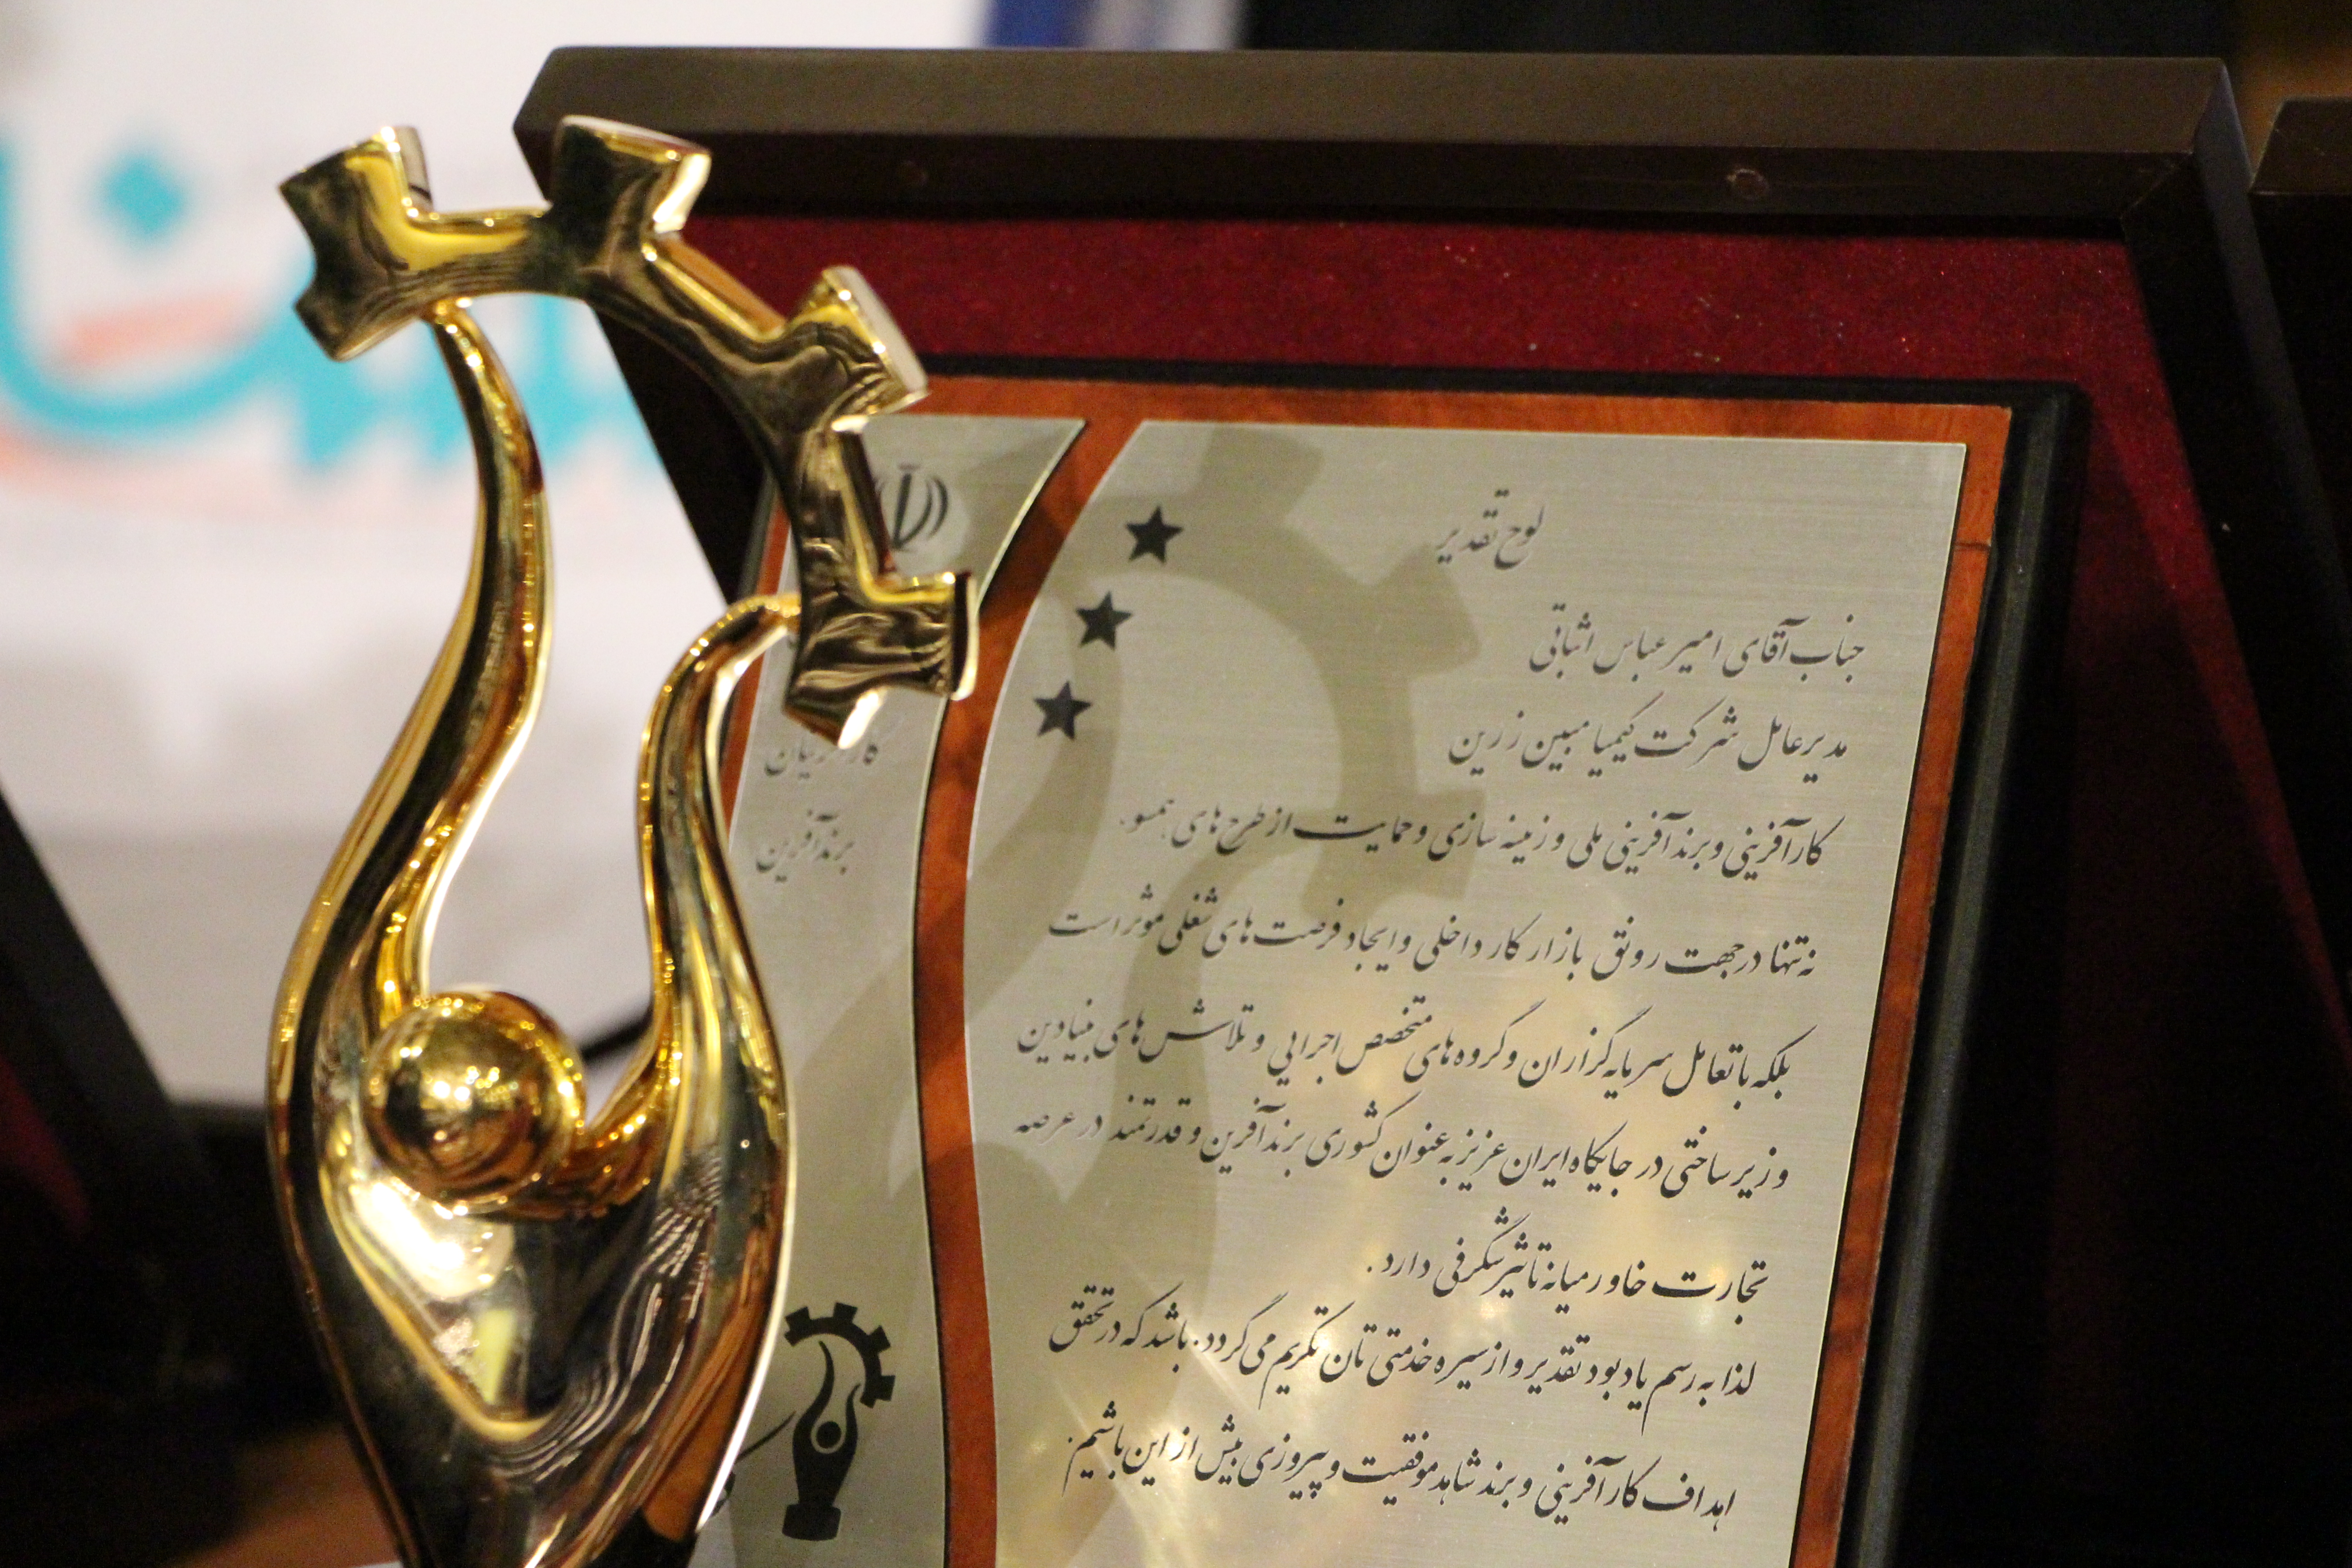 لوح تقدیر
جناب آقای امیر عباس اثباتی
مدیرعامل شرکت کیمیا مبین زرین
کارآفرینی و برندآفرینی ملی و زمینه سازی و حمایت از طرح های همسو،
نه تنها در جهت رونق بازار کار داخلی و ایجاد فرصت های شغلی موثر است
بلکه با تعامل سرمایه گزاران و گروه های متخصص اجرایی و تلاش های بنیادین
و زیرساختی در جایگاه ایران عزیز به عنوان کشوری برندآفرین و قدرتمند در عرصه
تجارت خاورمیانه تاثیر شگرفی دارد.
لذا به رسم یادبود تقدیر و از سیره خدمتی تان تکریم می گردد. باشد که در تحقق
اهداف کارآفرینی و برند شاهد موفقیت و پیروزی بیش از این باشیم.
برندآفرین